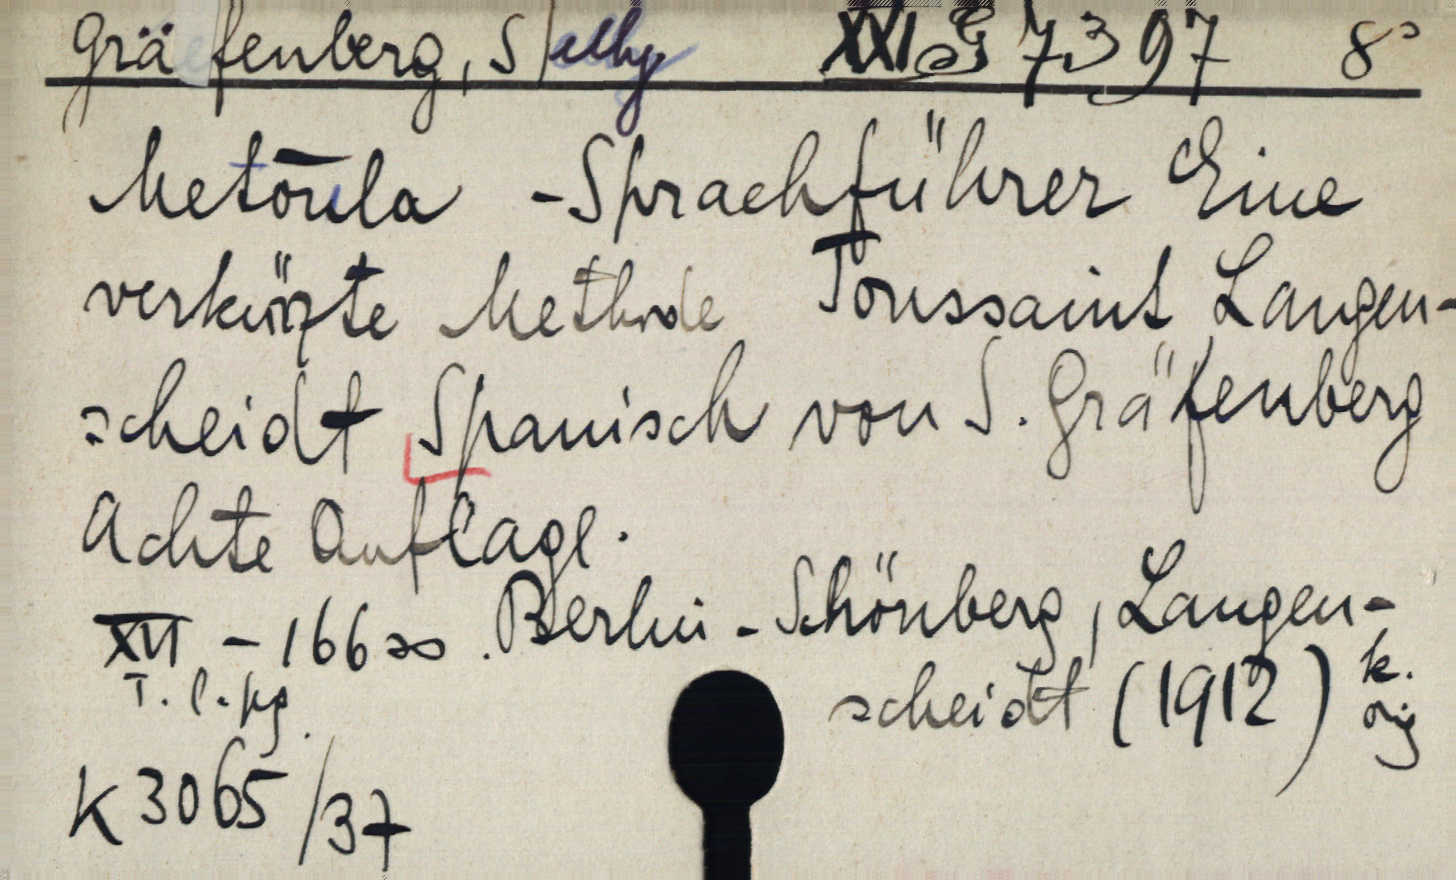 Gräfenberg, Selly XXI G 7397 8°
Metoula - Sprachführer Eine
verkürzte Methode Toussaint Langen-
scheidt Spanisch von S. Gräfenberg
Achte Auflage.
XVI - 166 . Berlin - Schönberg, Langen-
T. l. kg. scheidt (1912) k.
orig
K 3065/37